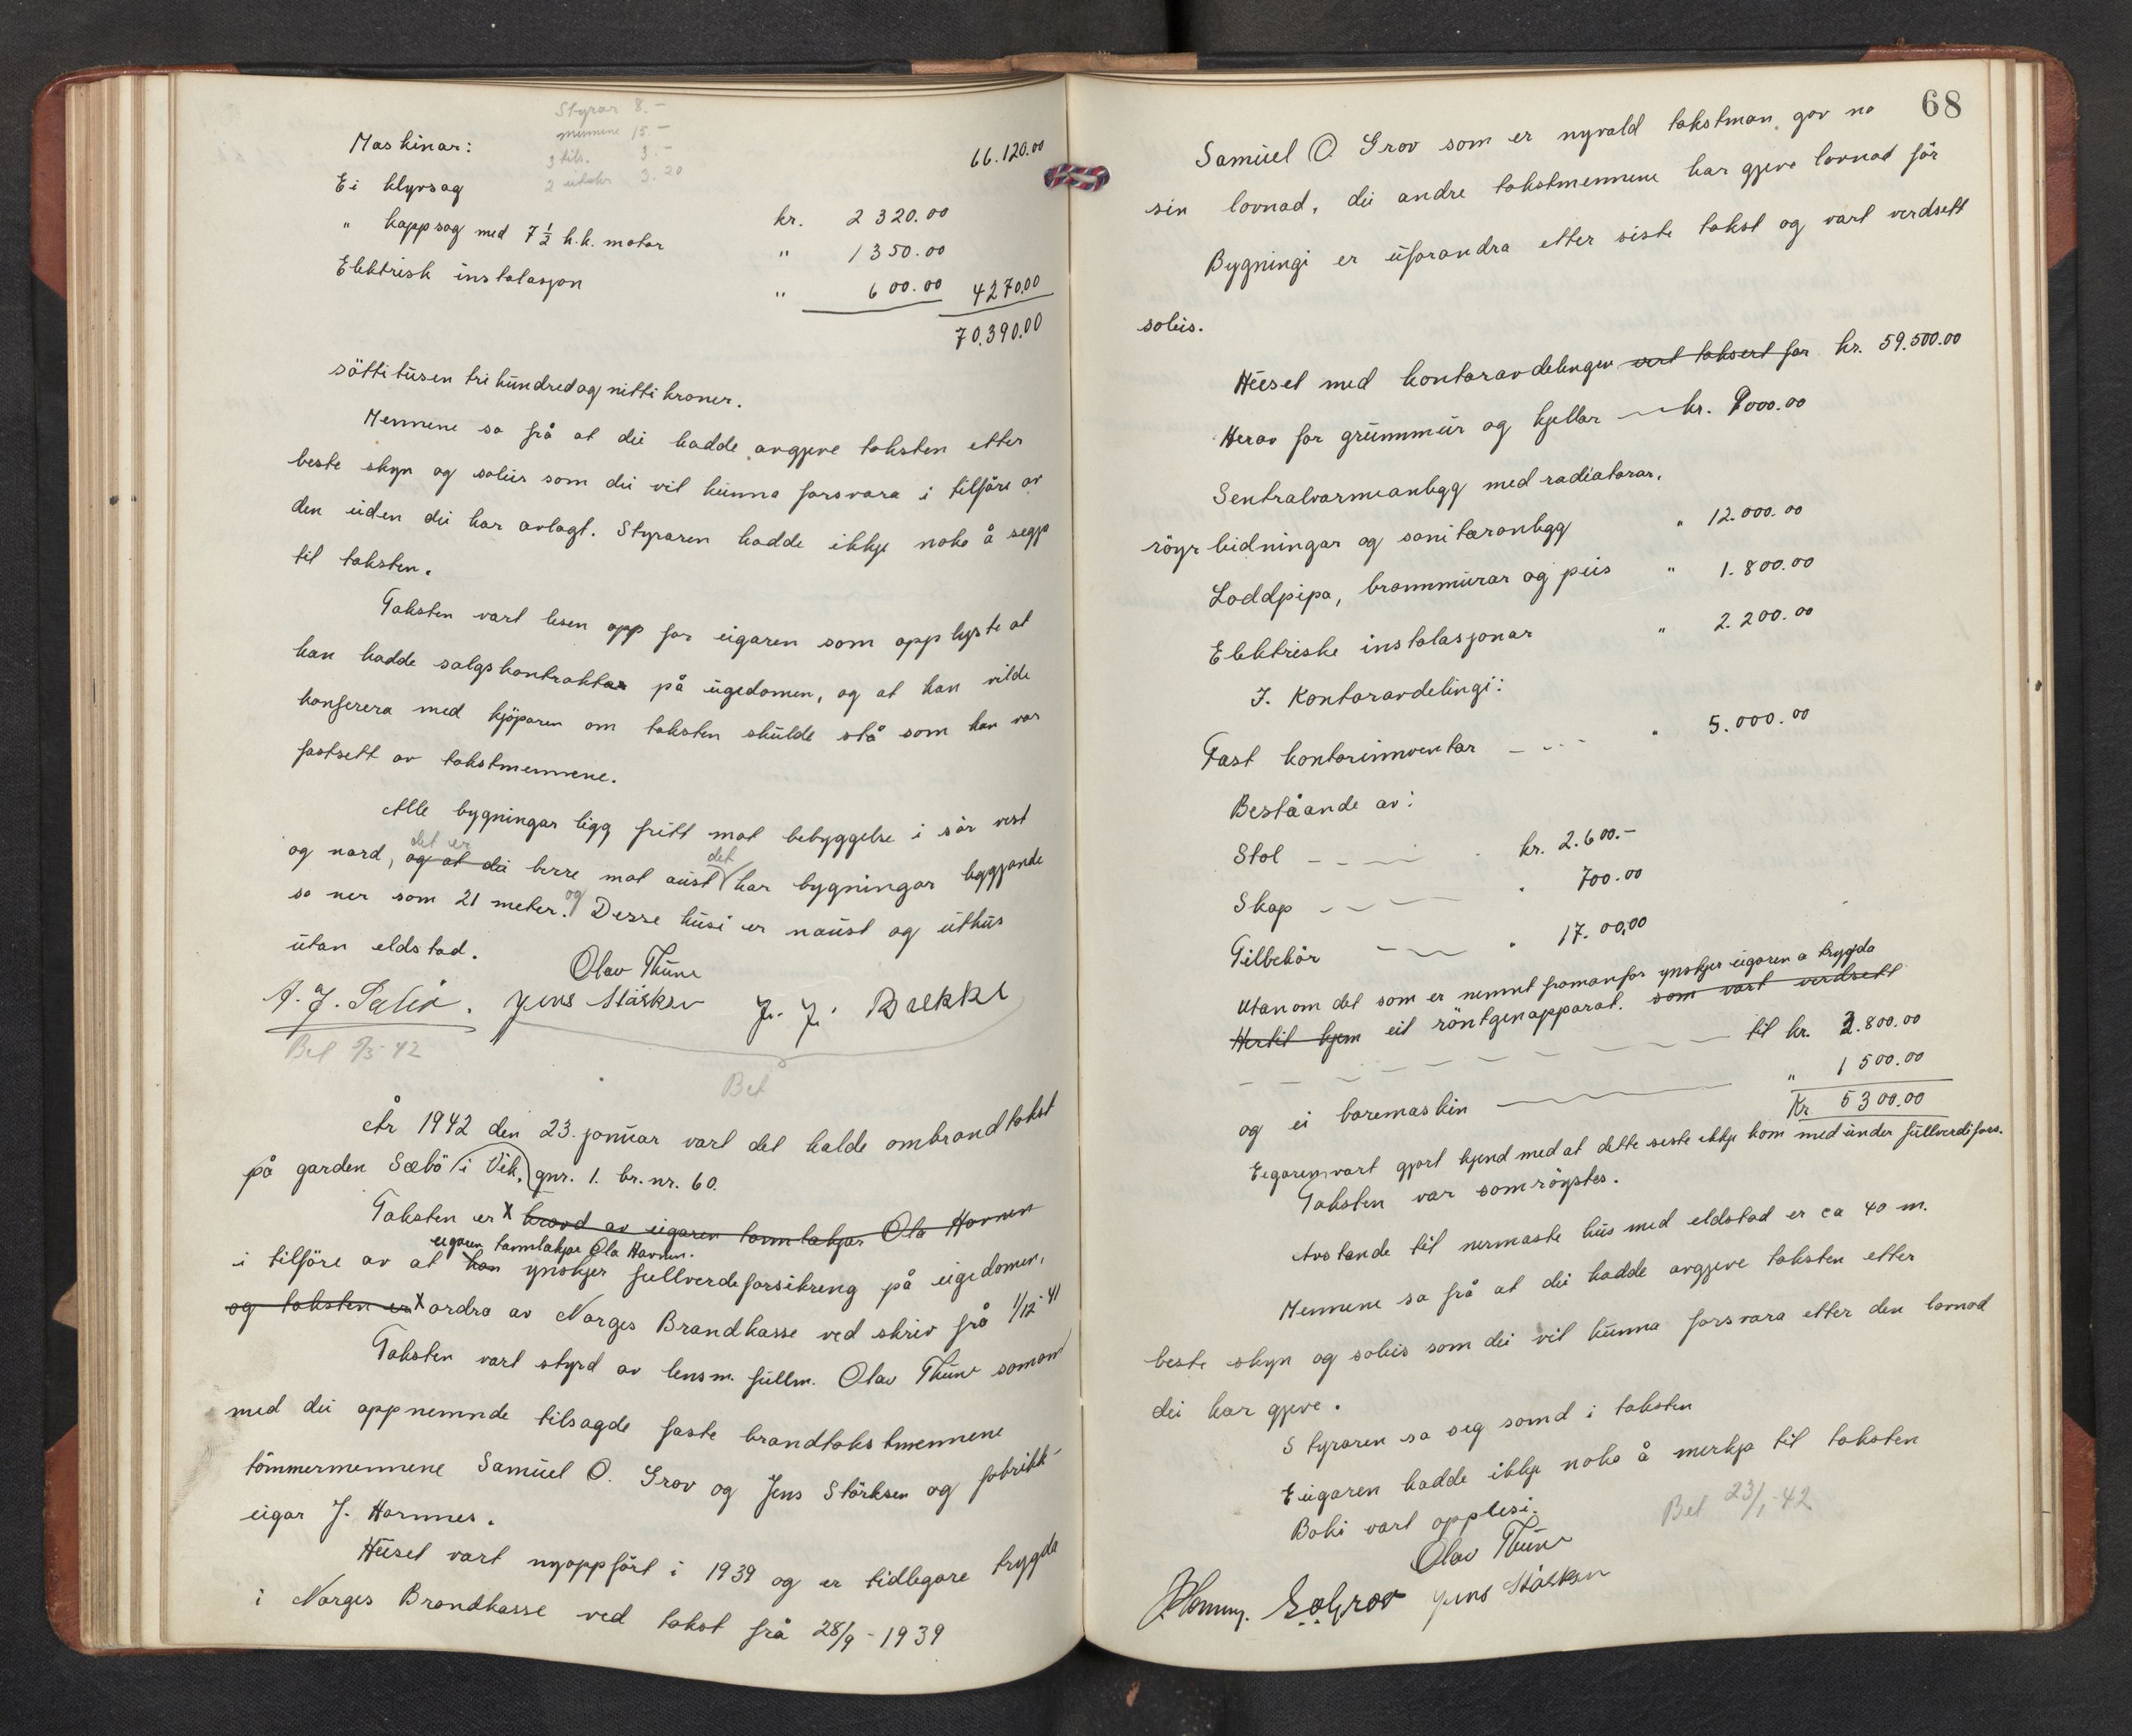 Styrar 8.-
mennene 15.-
3 tils. 3.-
2 utskr. 3.20
Maskinar: 66.120.00
Ei klyvsag kr. 2 320.00
" kappsag med 7 1/2 h.k. motor " 1 350.00
Elektrisk instalasjon " 600.00 4270.00
70.390.00
søtti tusen tri hundred og nitti kroner.
Mennene sa frå at dei hadde avgjeve taksten etter
beste skyn og soleis som dei vil kunna forsvara i tilføre av
den eiden dei har avlagt. Styraren hadde ikkje noko å segja
til taksten.
Taksten vart lesen opp for eigaren som opplyste at
han hadde salgskontraktar på eigedomen, og at han vilde
konferera med kjøparen om taksten skulde stå som han var
fastsett av takstmennene.
Alle bygningar ligg fritt mot bebyggelse i sør vest
og nord, og at dei det er berre mot aust det har bygningar liggjande
so ner som 21 meter. og Desse husi er naust og uthus
utan eldstad.
Olav Thune
Jens Størksen J. J. Bakke
Bet 9/3-42
Bet
År 1942 den 23. januar vart det halde ombrandtakst
på garden Sæbø i Vik, gnr. 1. br.nr. 60.
Taksten er x kravd av eigaren tannlækjar Ola Hovnen
eigaren tannlækjar Ola Havnen.
i tilføre av at han ynskjer fullverdeforsikring på eigedomen,
og taksten er x ordra av Norges Brandkasse ved skriv frå 1/12-41
Taksten vart styrd av lensm. fullm. Olav Thune soman
med dei oppnemnde tilsagde faste brandtakstmennene
tømmermennene Samuel O. Grov og Jens Størksen og fabrikk-
eigar J. Hamnes.
Huset vart nyoppført i 1939 og er tidlegare trygda
i Norges Brandkasse ved takst frå 28/9-1939
68
Samuel O. Grov som er nyvald takstman gav no
sin lovnad, dei andre takstmennene har gjeve lovnad før
Bygningi er uforandra etter siste takst og vart verdsett
soleis.
Huset med kontoravdelingen vert taksert for kr. 59.500.00
Herav for grunnmur og kjellar kr. 9000.00
Sentralvarmeanlegg med radiatorar,
røyrleidningar og sanitæranlegg " 12.000.00
Loddpipa, brannmurar og peis " 1.800.00
Elektriske instalasjonar " 2.200.00
I. Kontoravdelingi:
Fast kontorinnventar " 5.000.00
Beståande av:
Stol kr. 2.600.-
Skap " 700.00
Tilbehør " 17.00,00
Utanom det som er nemnt framanfor ynskjer eigaren å trygda
Hertil kjem eit røntgenapparat. som vart verdsett
til kr. 3.800.00
og ei boremaskin " 1 500.00
Kr 5300.00
Eigaren vart gjort kjend med at dette siste ikkje kom med under fullverdifors.
Taksten var samrøystes.
Avstande til nermaste hus med eldstad er ca 40 m.
Mennene sa frå at dei hadde avgjeve taksten etter
beste skyn og soleis som dei vil kunna forsvara etter den lovnad
dei har gjeve.
Styraren sa seg samd i taksten
Eigaren hadde ikkje noko å merkja til taksten
Boki vart opplesi.
Bet 23/1-42
Olav Thune
S.O.Grov Jens Størksen